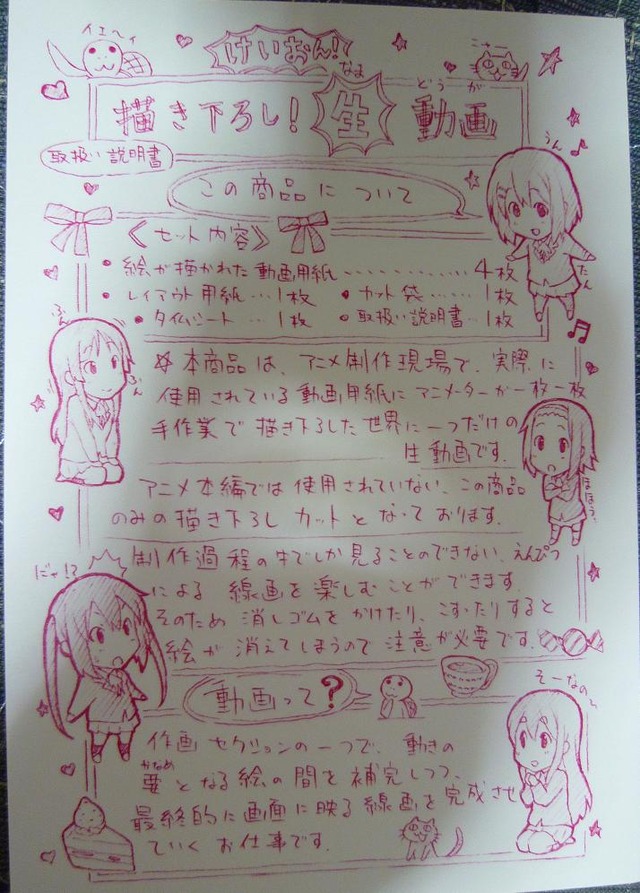 イエーイ
けいおん!
なま
どうが
描き下ろし!生動画
取扱い説明書
うん
この商品について
《セット内容》
・絵が描かれた動画用紙…………4枚
・レイアウト用紙…1枚 ・カット袋……1枚
・タイムシート…1枚 ・取扱い説明書…1枚
たん
ふん
ふん
☆本商品は、アニメ制作現場で、実際に
使用されている動画用紙にアニメーターが一枚一枚
手作業で描き下ろした世界に一つだけの
生動画です。
ほほう
アニメ本編では使用されていない、この商品
のみの描き下ろしカットとなっております。
にゃ!?
制作過程の中でしか見ることのできない、えんぴつ
による線画を楽しむことができます。
そのため消しゴムをかけたり、こすったりすると
絵が消えてしまうので注意が必要です。
動画って?
そーなの〜
作画セクションの一つで、動きの
かなめ
要となる絵の間を補完しつつ、
最終的に画面に映る線画を完成させ
ていくお仕事です。